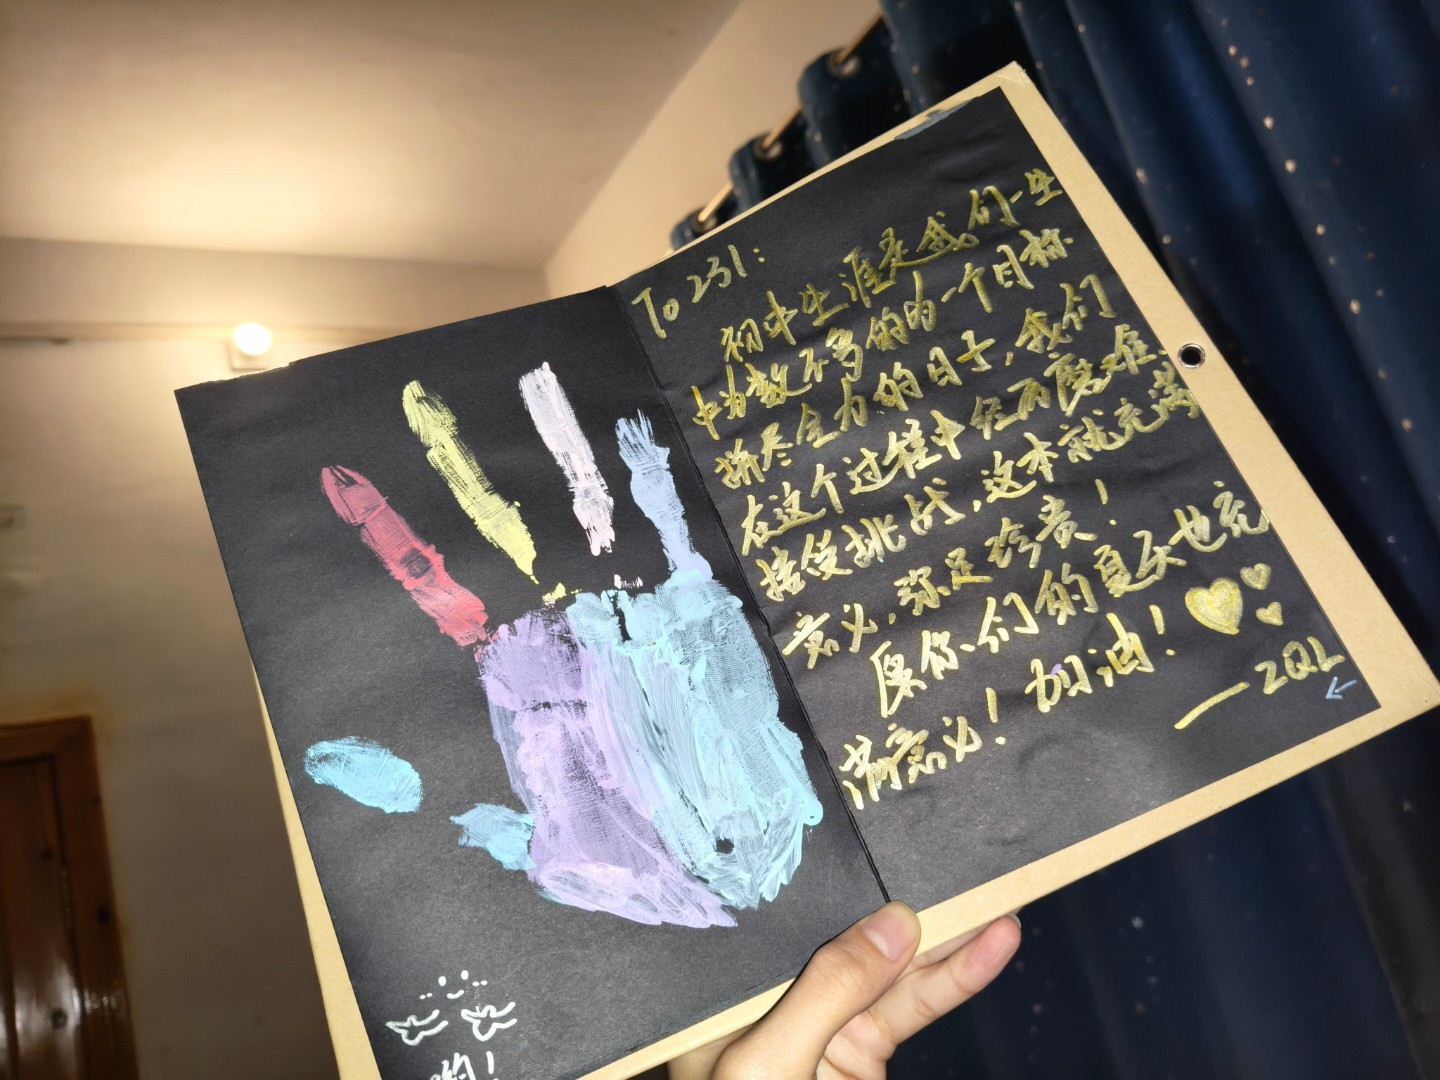 To 231:
初中生涯是我们一生
中为数不多的为一个目标
拼尽全力的日子,我们
在这个过程中经历磨难
接受挑战,这本就充满
意义,弥足珍贵!
愿你们的夏天也充
满意义!加油!
——ZQL
哟!